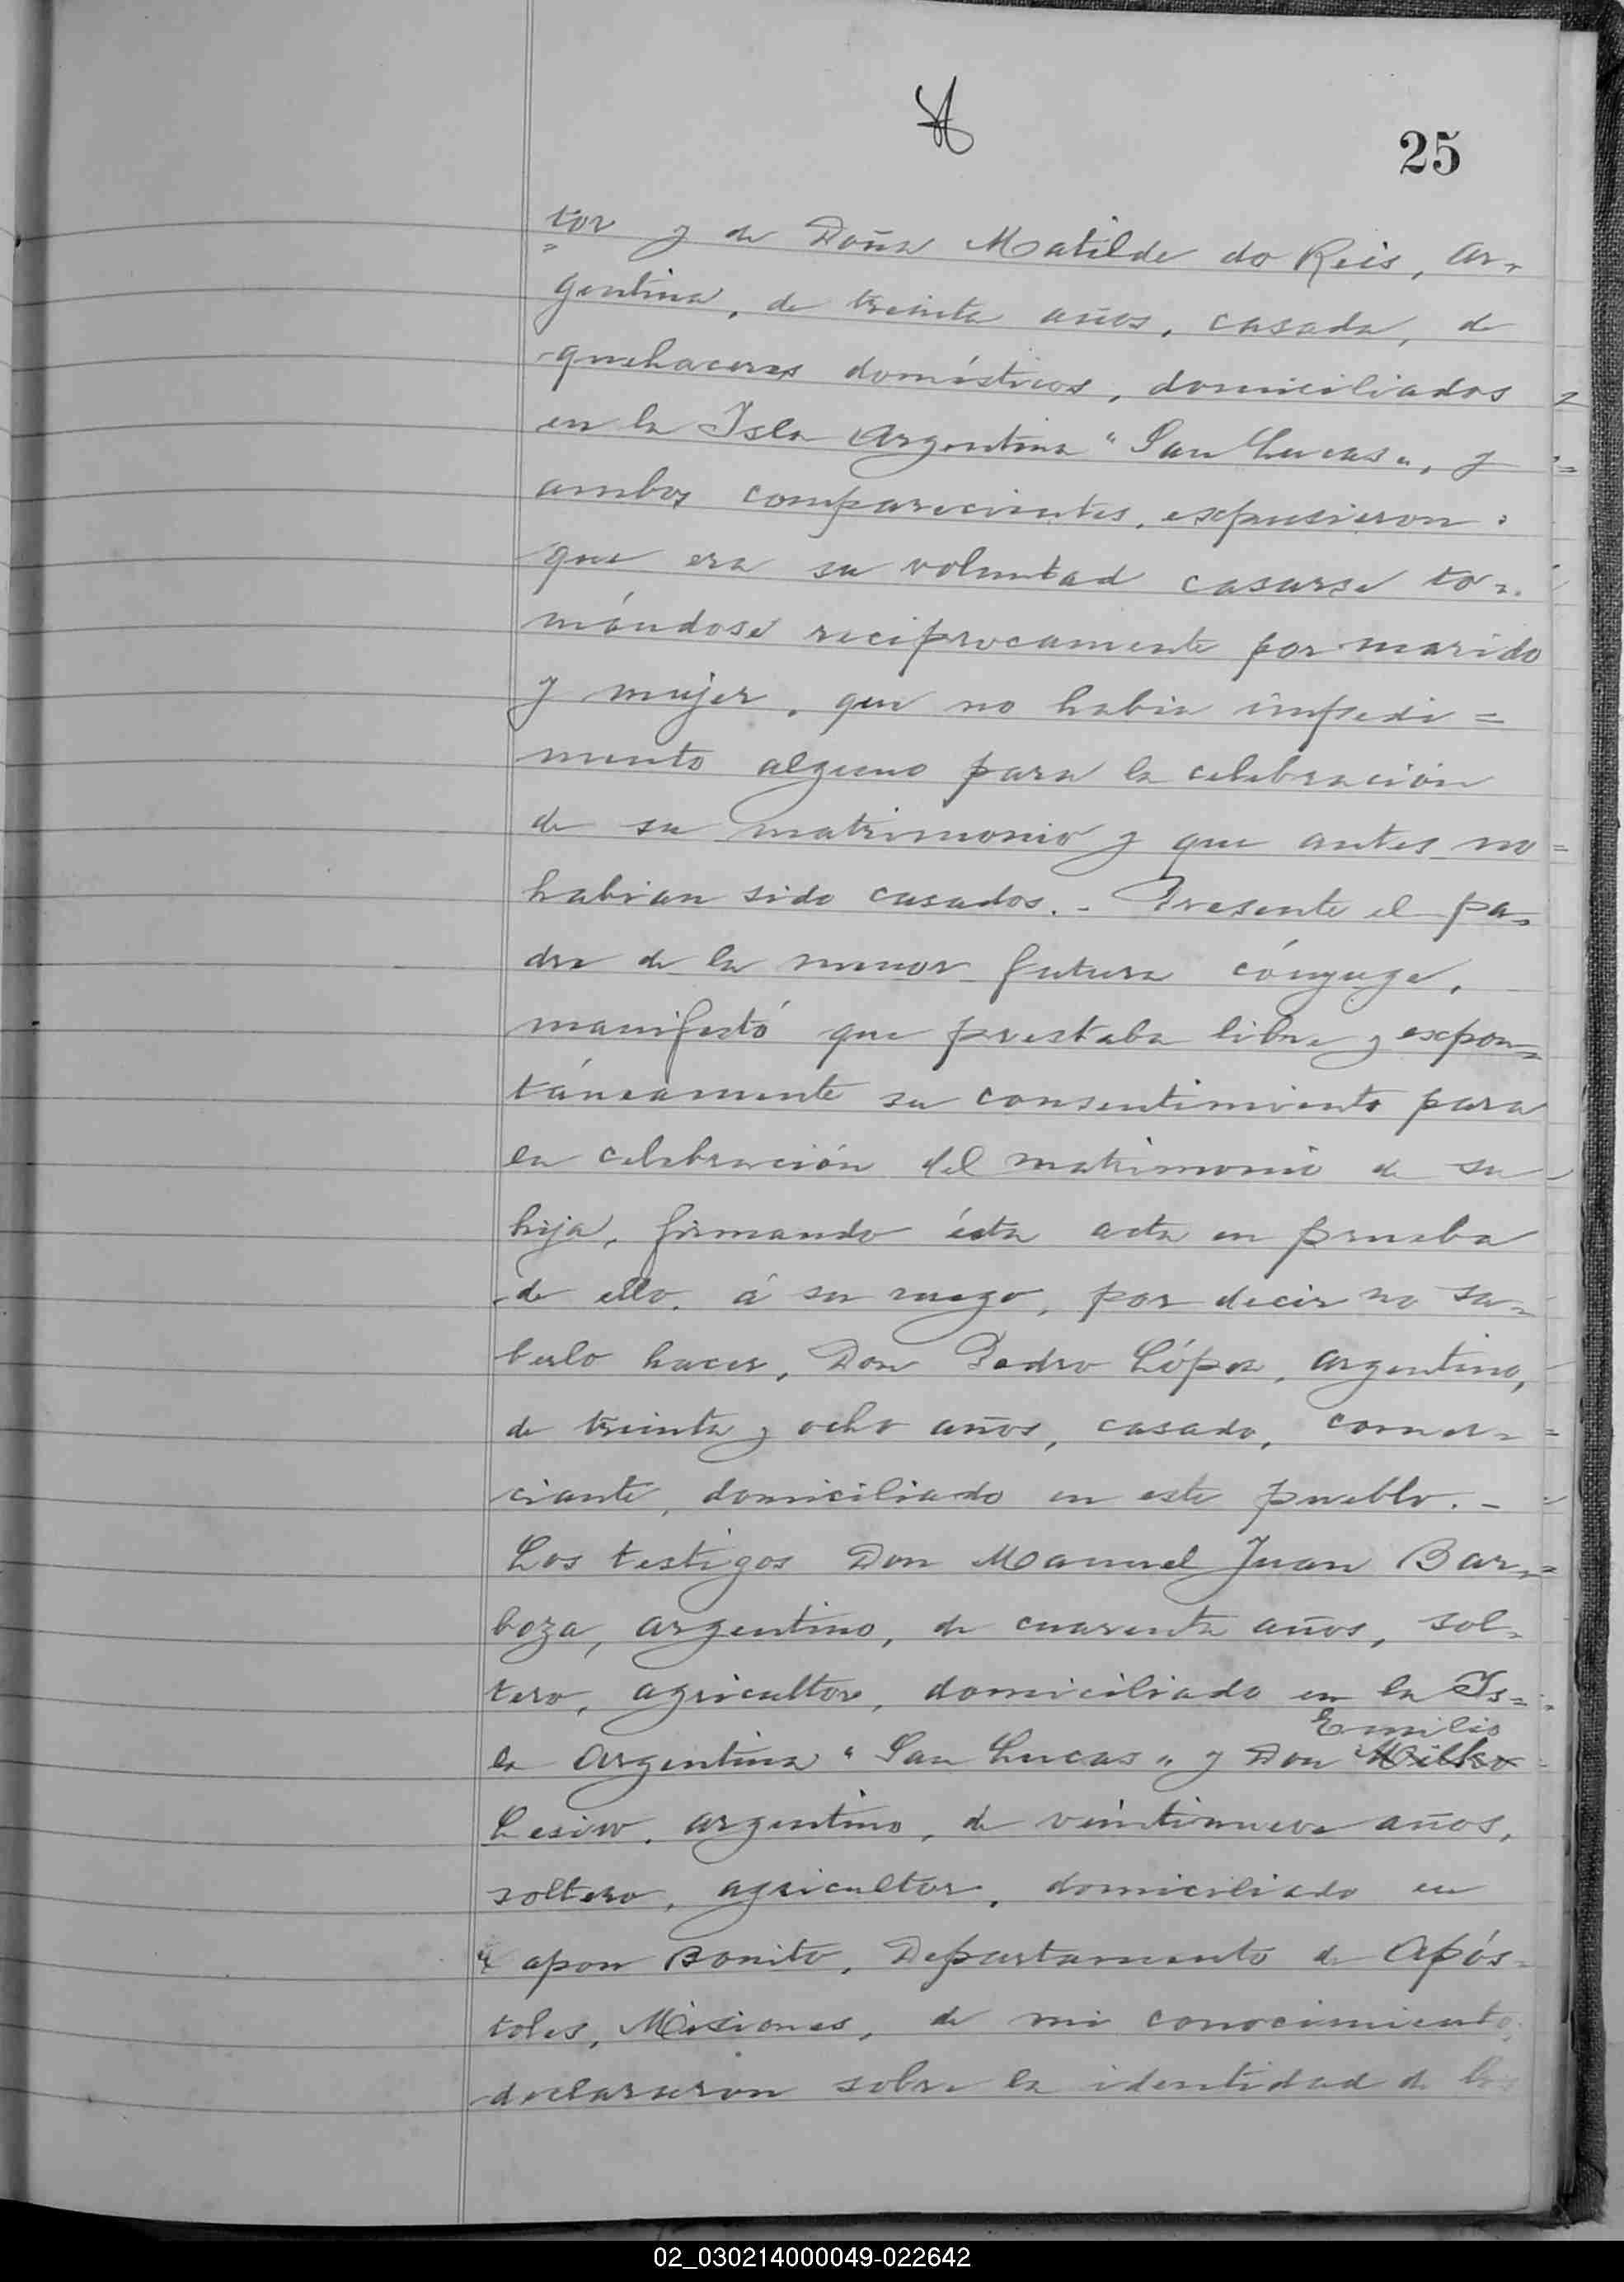 25
tor y de Doña Matilde do Reis, ar-
gentina, de treinta años, casada, de
quehaceres domésticos, domiciliados
en la Isla Argentina "San Lucas", y
ambos comparecientes, expusieron:
que era su voluntad casarse to-
mándose reciprocamente por marido
y mujer, que no habia impedi=
mento alguno para la celebración
de su matrimonio y que antes no
habian sido casados.- Presente el pa-
dre de la menor futura cónyuge,
manifestó que prestaba libre y expon=
táneamente su consentimiento para
la celebración del matrimonio de su
hija, firmando ésta acta en prueba
de ello, á su ruego, por decir no sa-
berlo hacer, Don Pedro López, argentino,
de treinta y ocho años, casado, comer-
ciante, domiciliado en este pueblo.-
Los testigos Don Manuel Juan Bar-
boza, argentino, de cuarenta años, sol-
tero, agricultor, domiciliado en la Is-
Emilio
la Argentina "San Lucas" y Don Milko
Lesiw, argentino, de veintinueve años,
soltero, agricultor, domiciliado en
apon Bonito, Departamento de Após-
toles, Misiones, de mi conocimiento,
declararon sobre la identidad de los
02_030214000049-022642